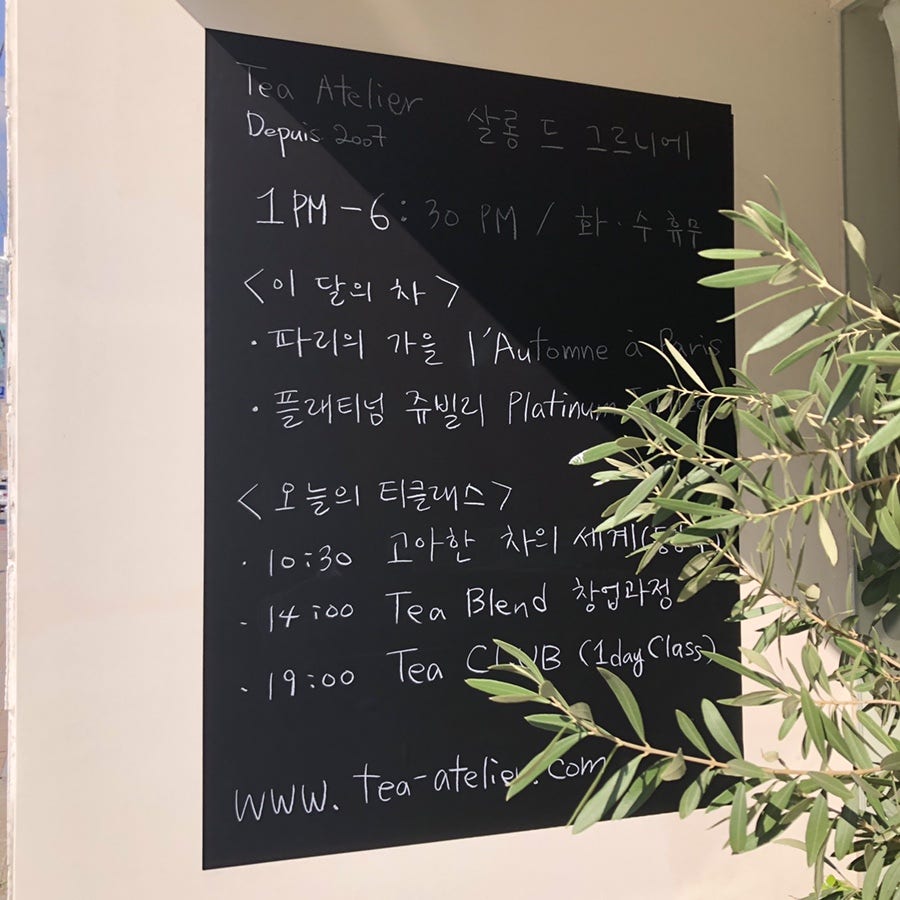 Tea Atelier 살롱 드 그르니에
Depuis 2007
1PM - 6:30 PM / 화·수 휴무
<이 달의 차>
· 파리의 가을 l'Automne à Paris
· 플래티넘 쥬빌리 Platinum
<오늘의 티클래스>
· 10:30 고아한 차의 세계
· 14:00 Tea Blend 창업과정
· 19:00 Tea CLUB (1day Class)
www.tea-atelier.com